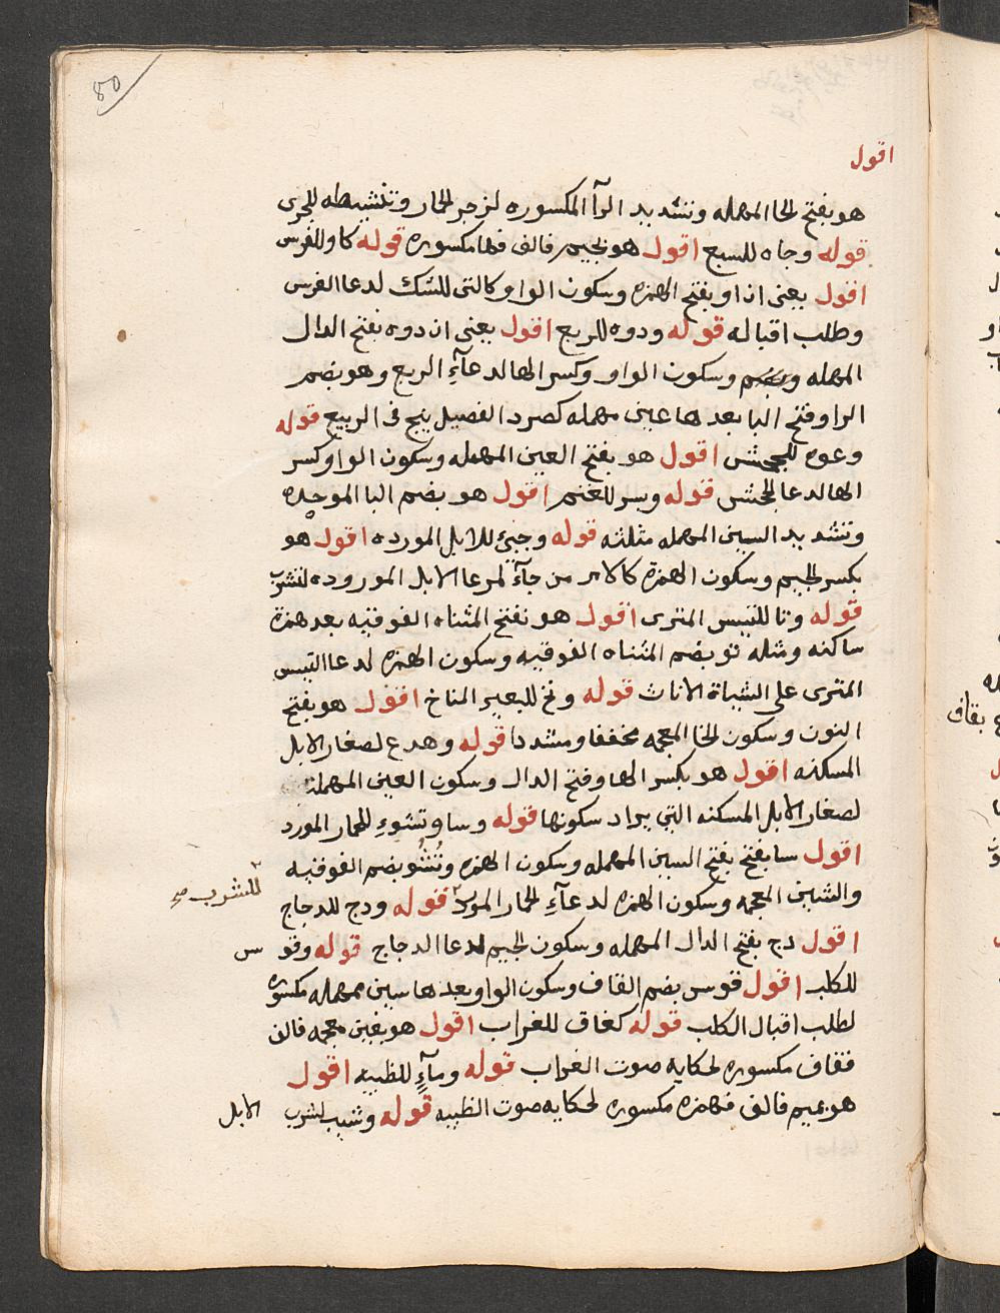 80
اقول
هو بفتح الحا المهمله وتشديد الرآ المكسوره لزجر الحمار وتنشيطه للجرى
قوله وجاه للسبع اقول هو بجيم فالف فها مكسوره قوله كاو للفرس
اقول يعنى ان او بفتح الهمزه وسكون الواو كالتى للشك لدعا الفرس
وطلب اقباله قوله ودوه للربع اقول يعنى ان دوه بفتح الدال
المهمله وسكون الواو وكسر الها لدعآءِ الربع وهو بضم
الرا وفتح البا بعدها عين مهمله كصرد الفصيل ينتج فى الربيع قوله
وعوه للجحش اقول هو بفتح العين المهمله وسكون الواو وكسر
الها لدعا الجحش قوله وبس للغنم اقول هو بضم البا الموحده
وتشديد السين المهمله مثلثه قوله وجئ للابل المورده اقول هو
بكسر الجيم وسكون الهمزه كالامر من جآءَ لدعا الابل الموروده لتشرب
قوله وتا للتيس المترى اقول هو بفتح المثناه الفوقيه بعدهمزة
ساكنه ومثله تو بضم المثناه الفوقيه وسكون الهمزه لدعا التيس
المترى على الشياة الاناث قوله ونخ للبعير المناخ اقول هو بفتح
النون وسكون الخا المعجمه مخففا ومشددا قوله وهدع لصغار الابل
المسكنه اقول هو بكسر الها وفتح الدال وسكون العين المهملة
لصغار الابل المسكنه التي يراد سكونها قوله وسا وتشوءِ للحمار المورد
اقول سا بفتح بفتح السين المهمله وسكون الهمزه وتُشُو بضم الفوقيه
والشين المعجمه وسكون الهمزه لدعآءِ الحمار المورد قوله ودج للدجاج
للشرب صح
اقول دج بفتح الدال المهمله وسكون الجيم لدعا الدجاج قوله وقو س
للكلب اقول قوس بضم القاف وسكون الواو بعدها سين مهمله مكسوره
لطلب اقبال الكلب قوله كغاق للغراب اقول هو بغين معجمه فالف
فقاف مكسوره لحكاية صوت الغراب قوله ومآءِ للظبيه اقول
هو بميم فالف فهمزه مكسوره لحكايه صوت الظبيه قوله وشيب لشرب
الابل